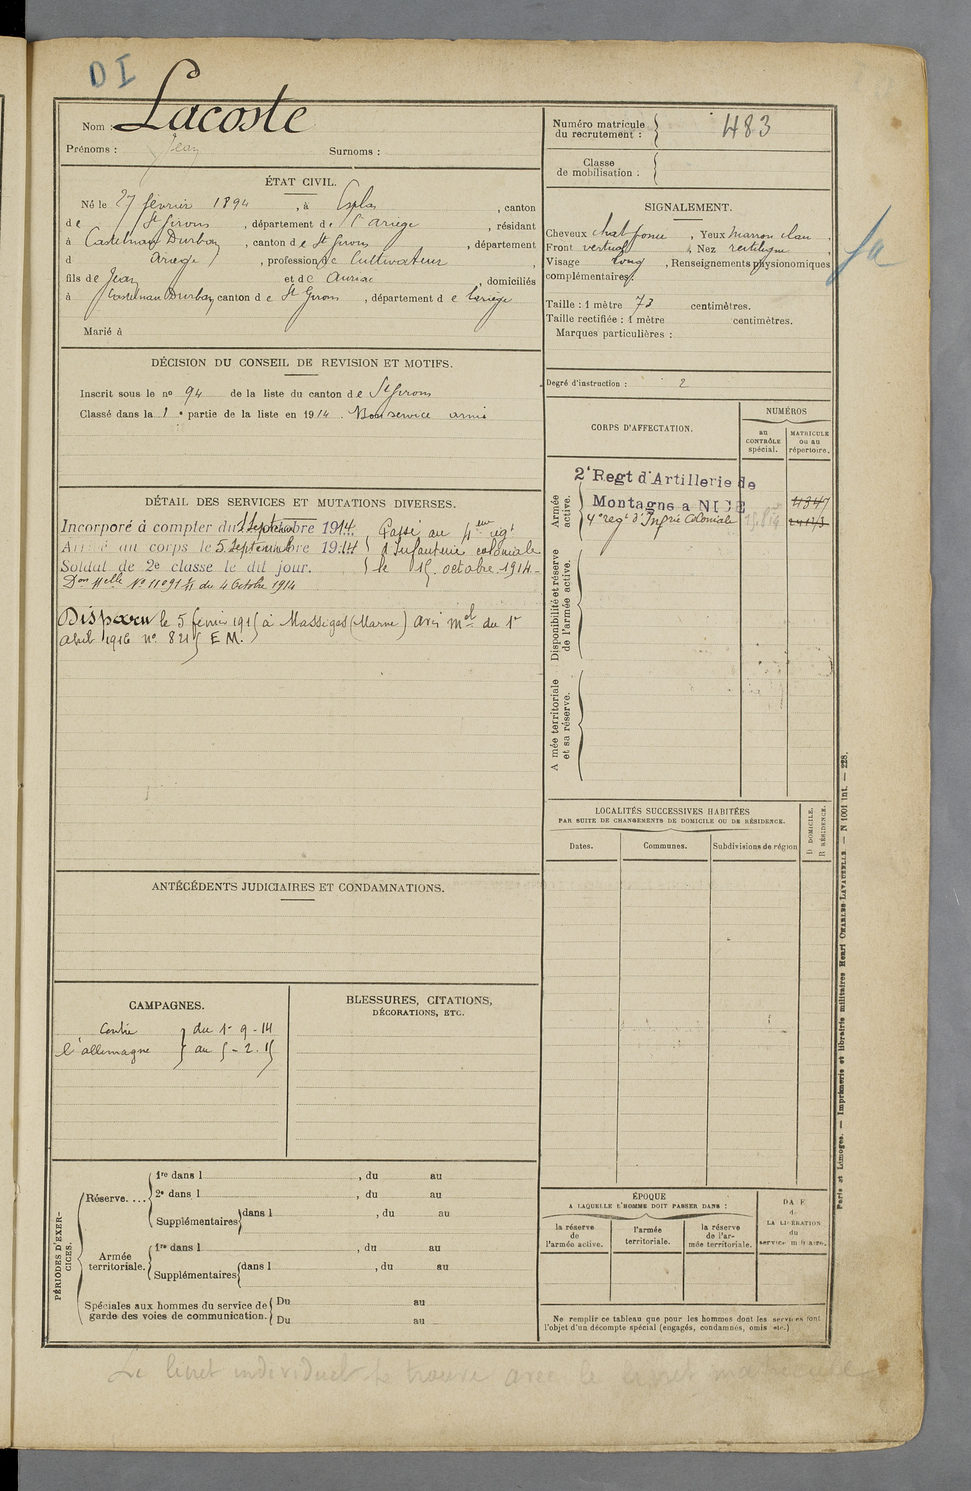 DI
Nom : Lacoste
Prénoms : Jean Surnoms :
ÉTAT CIVIL.
Né le 27 février 1894, à Esplas, canton
de St Girons, département de l'Ariège, résidant
à Castelnau Durban, canton de St Girons, département
d Ariège, profession de Cultivateur,
fils de Jean et de Auriac, domiciliés
à Castelnau Durban canton de St Girons, département de l'ariège
Marié à
DÉCISION DU CONSEIL DE REVISION ET MOTIFS.
Inscrit sous le nº 94 de la liste du canton de St Girons
Classé dans la 1e partie de la liste en 1914. Bon service armé
DÉTAIL DES SERVICES ET MUTATIONS DIVERSES.
Incorporé à compter du 1 Septembre 1914.
Arrivé au corps le 5 Septembre 1914
Soldat de 2e classe le dit jour.
Passé au 4eme regt
d'Infanterie coloniale
le 15 octobre 1914-
Don Melle Nº 11091 1/11 du 4 Octobre 1914
Disparu le 5 fevrier 1915 à Massiges (Marne) avis mel du 1er
avril 1916 nº 8215 E M.
ANTÉCÉDENTS JUDICIAIRES ET CONDAMNATIONS.
CAMPAGNES.
Contre
l'allemagne
du 1er-9-14
au 5-2.15
BLESSURES, CITATIONS,
DÉCORATIONS, ETC.
PÉRIODES D'EXER-
CICES.
Réserve....
1re dans l , du au
2e dans l , du au
Supplémentaires dans l , du au
Armée
territoriale.
1re dans l , du au
Supplémentaires dans l , du au
Spéciales aux hommes du service de
garde des voies de communication.
Du au
Du au
Numéro matricule
du recrutement : 483
Classe
de mobilisation :
SIGNALEMENT.
Cheveux chat foncé, Yeux marron clair,
Front vertical, Nez rectiligne,
Visage long, Renseignements physionomiques
complémentaires :
Taille : 1 mètre 73 centimètres.
Taille rectifiée : 1 mètre centimètres.
Marques particulières :
Degré d'instruction : 2
CORPS D'AFFECTATION.
NUMÉROS
au
CONTRÔLE
spécial.
MATRICULE
ou au
répertoire.
Armée
active.
2e Regt d'Artillerie de
Montagne a NICE
4e regt d'Infrie Coloniale
Disponibilité et réserve
de l'armée active.
Armée territoriale
et sa réserve.
LOCALITÉS SUCCESSIVES HABITÉES
PAR SUITE DE CHANGEMENTS DE DOMICILE OU DE RÉSIDENCE.
Dates.
Communes.
Subdivisions de région
D DOMICILE.
R RÉSIDENCE.
ÉPOQUE
A LAQUELLE L'HOMME DOIT PASSER DANS :
la réserve
de
l'armée active.
l'armée
territoriale.
la réserve
de l'ar-
mée territoriale.
DATE
de
LA LIBÉRATION
du
service militaire.
Ne remplir ce tableau que pour les hommes dont les services font
l'objet d'un décompte spécial (engagés, condamnés, omis etc.)
Paris et Limoges. — Imprimerie et librairie militaires Henri CHARLES-LAVAUZELLE. — N 1001 int. — 228.
Le livret individuel se trouve avec le livret matricule